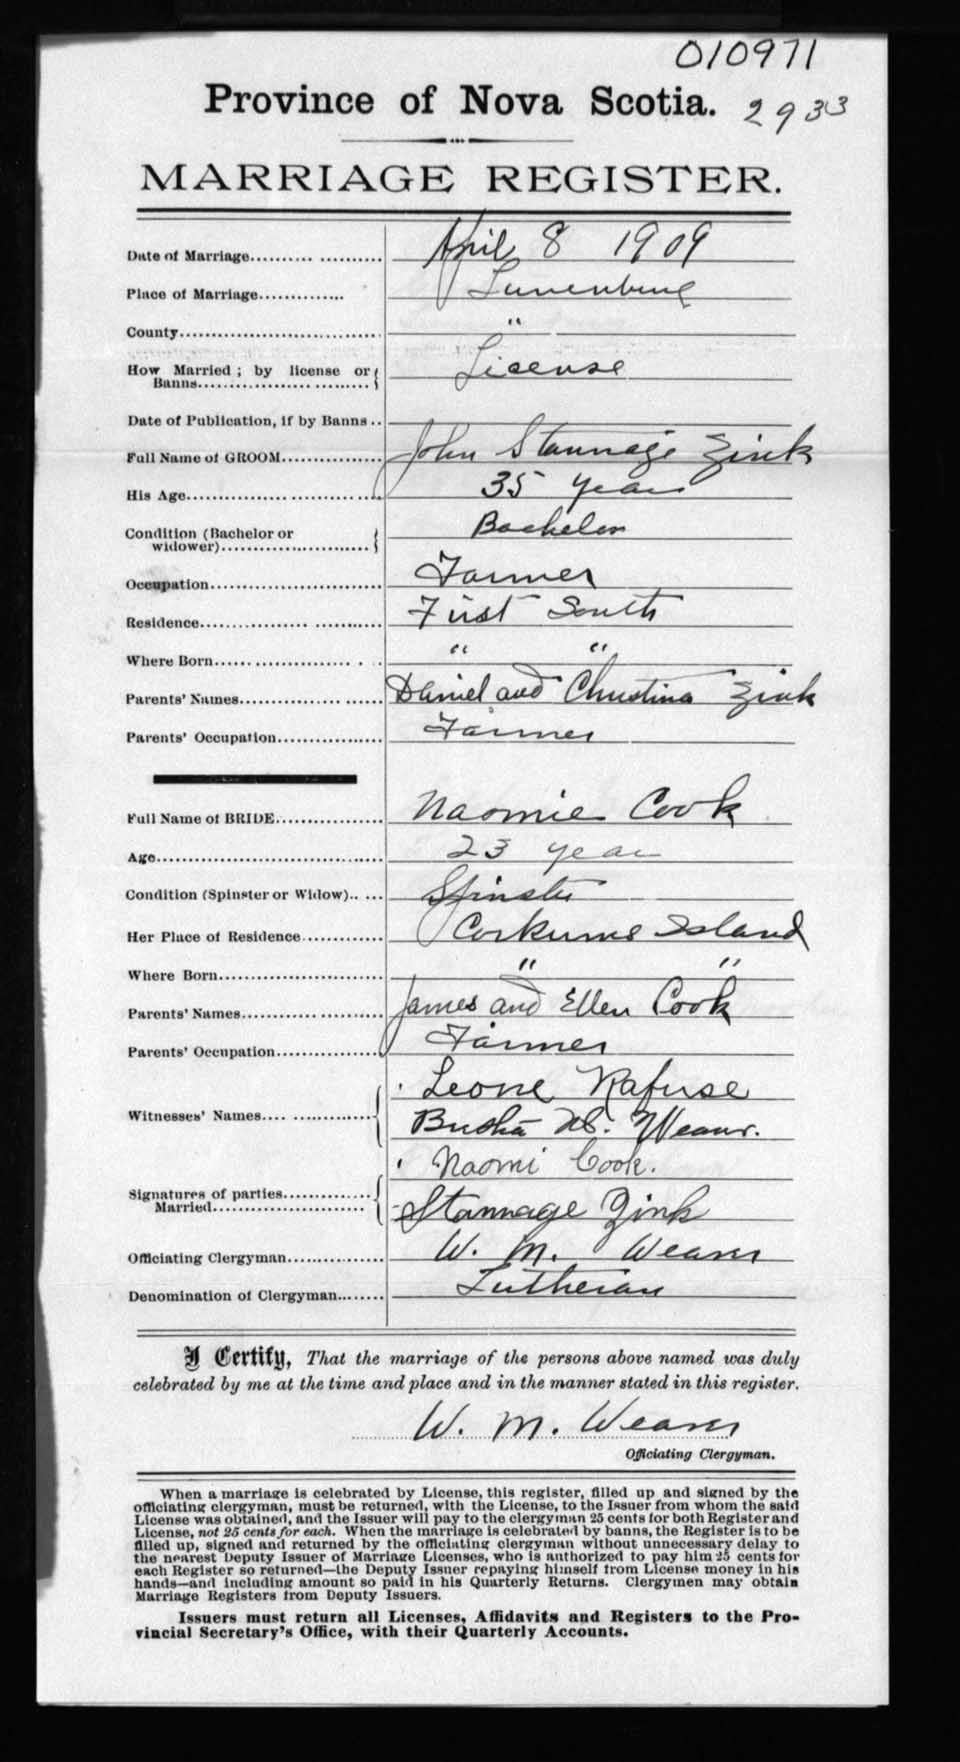 010971
Province of Nova Scotia. 2933
MARRIAGE REGISTER.
Date of Marriage.......... .......... April 8 1909
Place of Marriage.............. Lunenburg
County................................. "
How Married ; by license or
Banns............................ License
Date of Publication, if by Banns ..
Full Name of GROOM................ John Stannage Zink
His Age................................ 35 years
Condition (Bachelor or
widower)........................ Bachelor
Occupation............................ Farmer
Residence.............................. First South
Where Born............................ " "
Parents' Names........................ Daniel and Christina Zink
Parents' Occupation................ Farmer
Full Name of BRIDE................ Naomie Cook
Age...................................... 23 years
Condition (Spinster or Widow).. ... Spinster
Her Place of Residence............ Corkums Island
Where Born........................... " "
Parents' Names....................... James and Ellen Cook
Parents' Occupation................ Farmer
Witnesses' Names.... ............. Leone Rafuse
Weaver.
Naomi Cook.
Signatures of parties.............
Married.......................... Stannage Zink
Officiating Clergyman.............. W. M. Weaver
Denomination of Clergyman........ Lutheran
I Certify, That the marriage of the persons above named was duly
celebrated by me at the time and place and in the manner stated in this register.
W. M. Weaver
Officiating Clergyman.
When a marriage is celebrated by License, this register, filled up and signed by the
officiating clergyman, must be returned, with the License, to the Issuer from whom the said
License was obtained, and the Issuer will pay to the clergyman 25 cents for both Register and
License, not 25 cents for each. When the marriage is celebrated by banns, the Register is to be
filled up, signed and returned by the officiating clergyman without unnecessary delay to
the nearest Deputy Issuer of Marriage Licenses, who is authorized to pay him 25 cents for
each Register so returned—the Deputy Issuer repaying himself from License money in his
hands—and including amount so paid in his Quarterly Returns. Clergymen may obtain
Marriage Registers from Deputy Issuers.
Issuers must return all Licenses, Affidavits and Registers to the Pro-
vincial Secretary's Office, with their Quarterly Accounts.